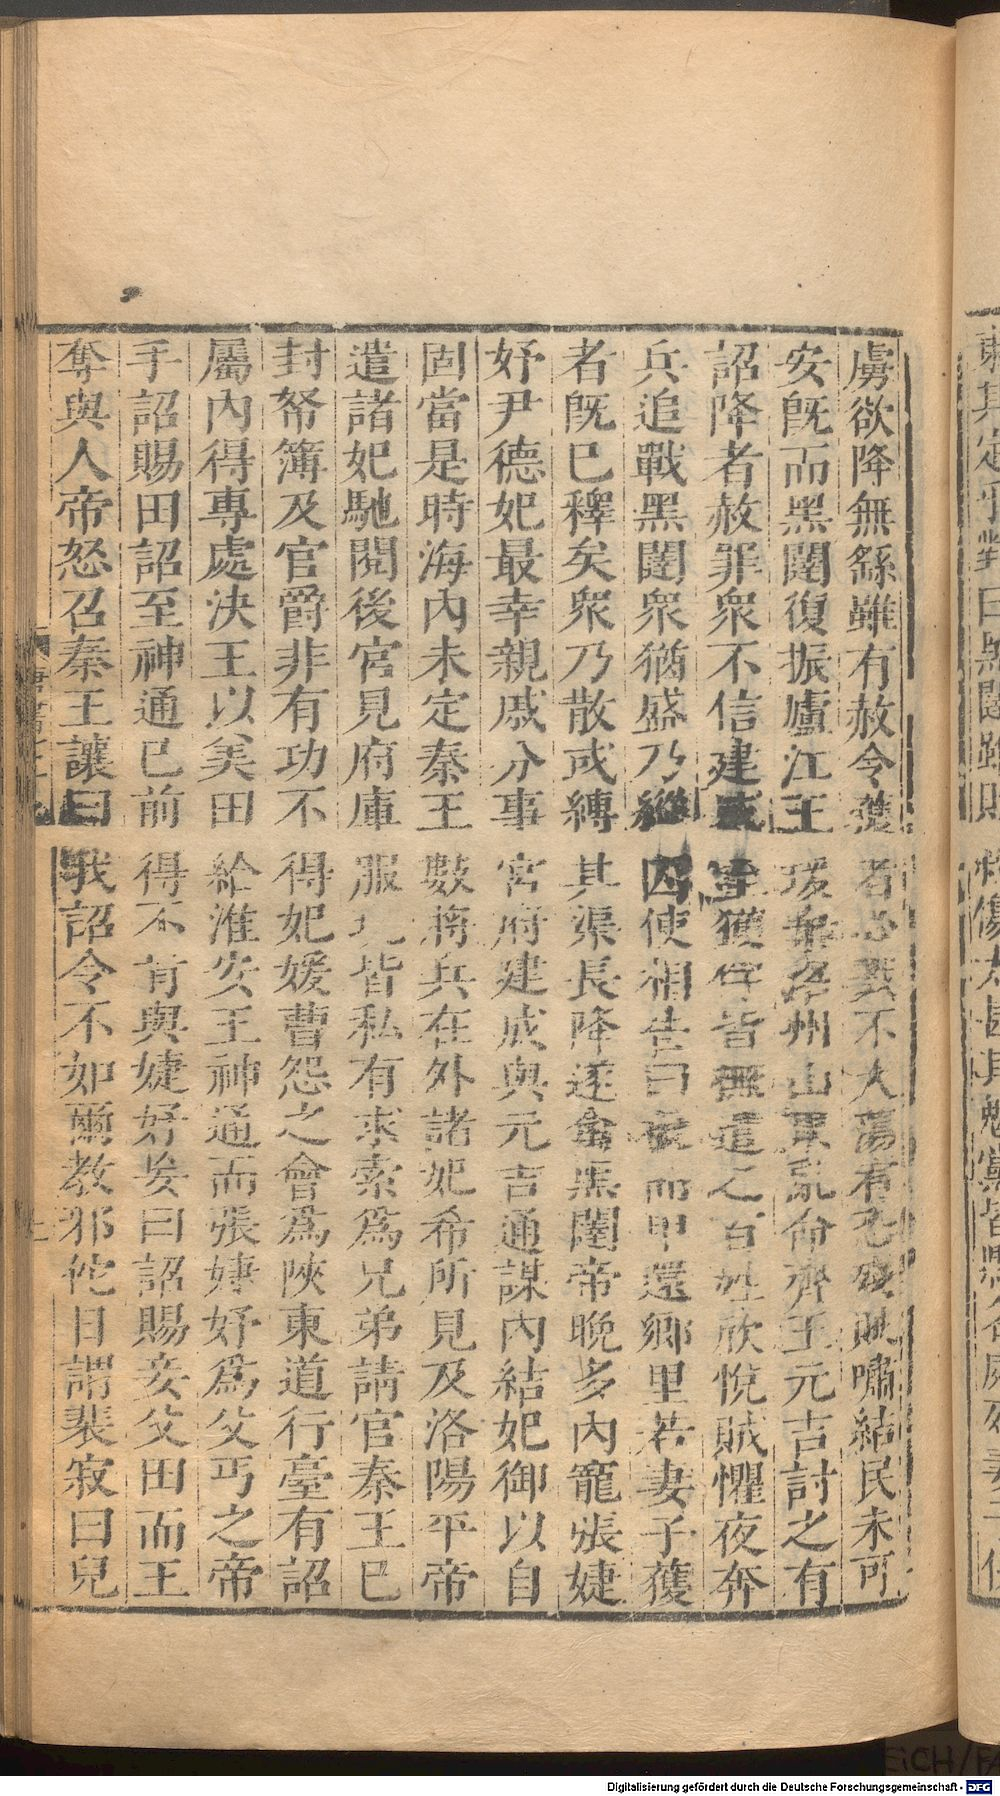 虜欲降無繇雖有赦令獲者必戮不大蕩宥恐殘賊嘯結民未可
安既而黑闥復振廬江王瑗棄洺州山東亂命齊王元吉討之有
詔降者赦罪衆不信建成至獲俘皆撫遣之百姓欣悅賊懼夜奔
兵追戰黑闥衆猶盛乃縱囚使相告曰褫而甲還鄉里若妻子獲
者既已釋矣衆乃散或縛其渠長降遂禽黑闥帝晚多內寵張婕
妤尹德妃最幸親戚分事宮府建成與元吉通謀內結妃御以自
固當是時海內未定秦王數將兵在外諸妃希所見及洛陽平帝
遣諸妃馳閱後宮見府庫服玩皆私有求索爲兄弟請官秦王已
封帑簿及官爵非有功不得妃媛曹怨之會爲陝東道行臺有詔
屬內得專處決王以美田給淮安王神通而張婕妤爲父丐之帝
手詔賜田詔至神通已前得不肯與婕妤妄曰詔賜妾父田而王
奪與人帝怒召秦王讓曰我詔令不如爾教邪佗日謂裴寂曰兒
Digitalisierung gefördert durch die Deutsche Forschungsgemeinschaft - DFG